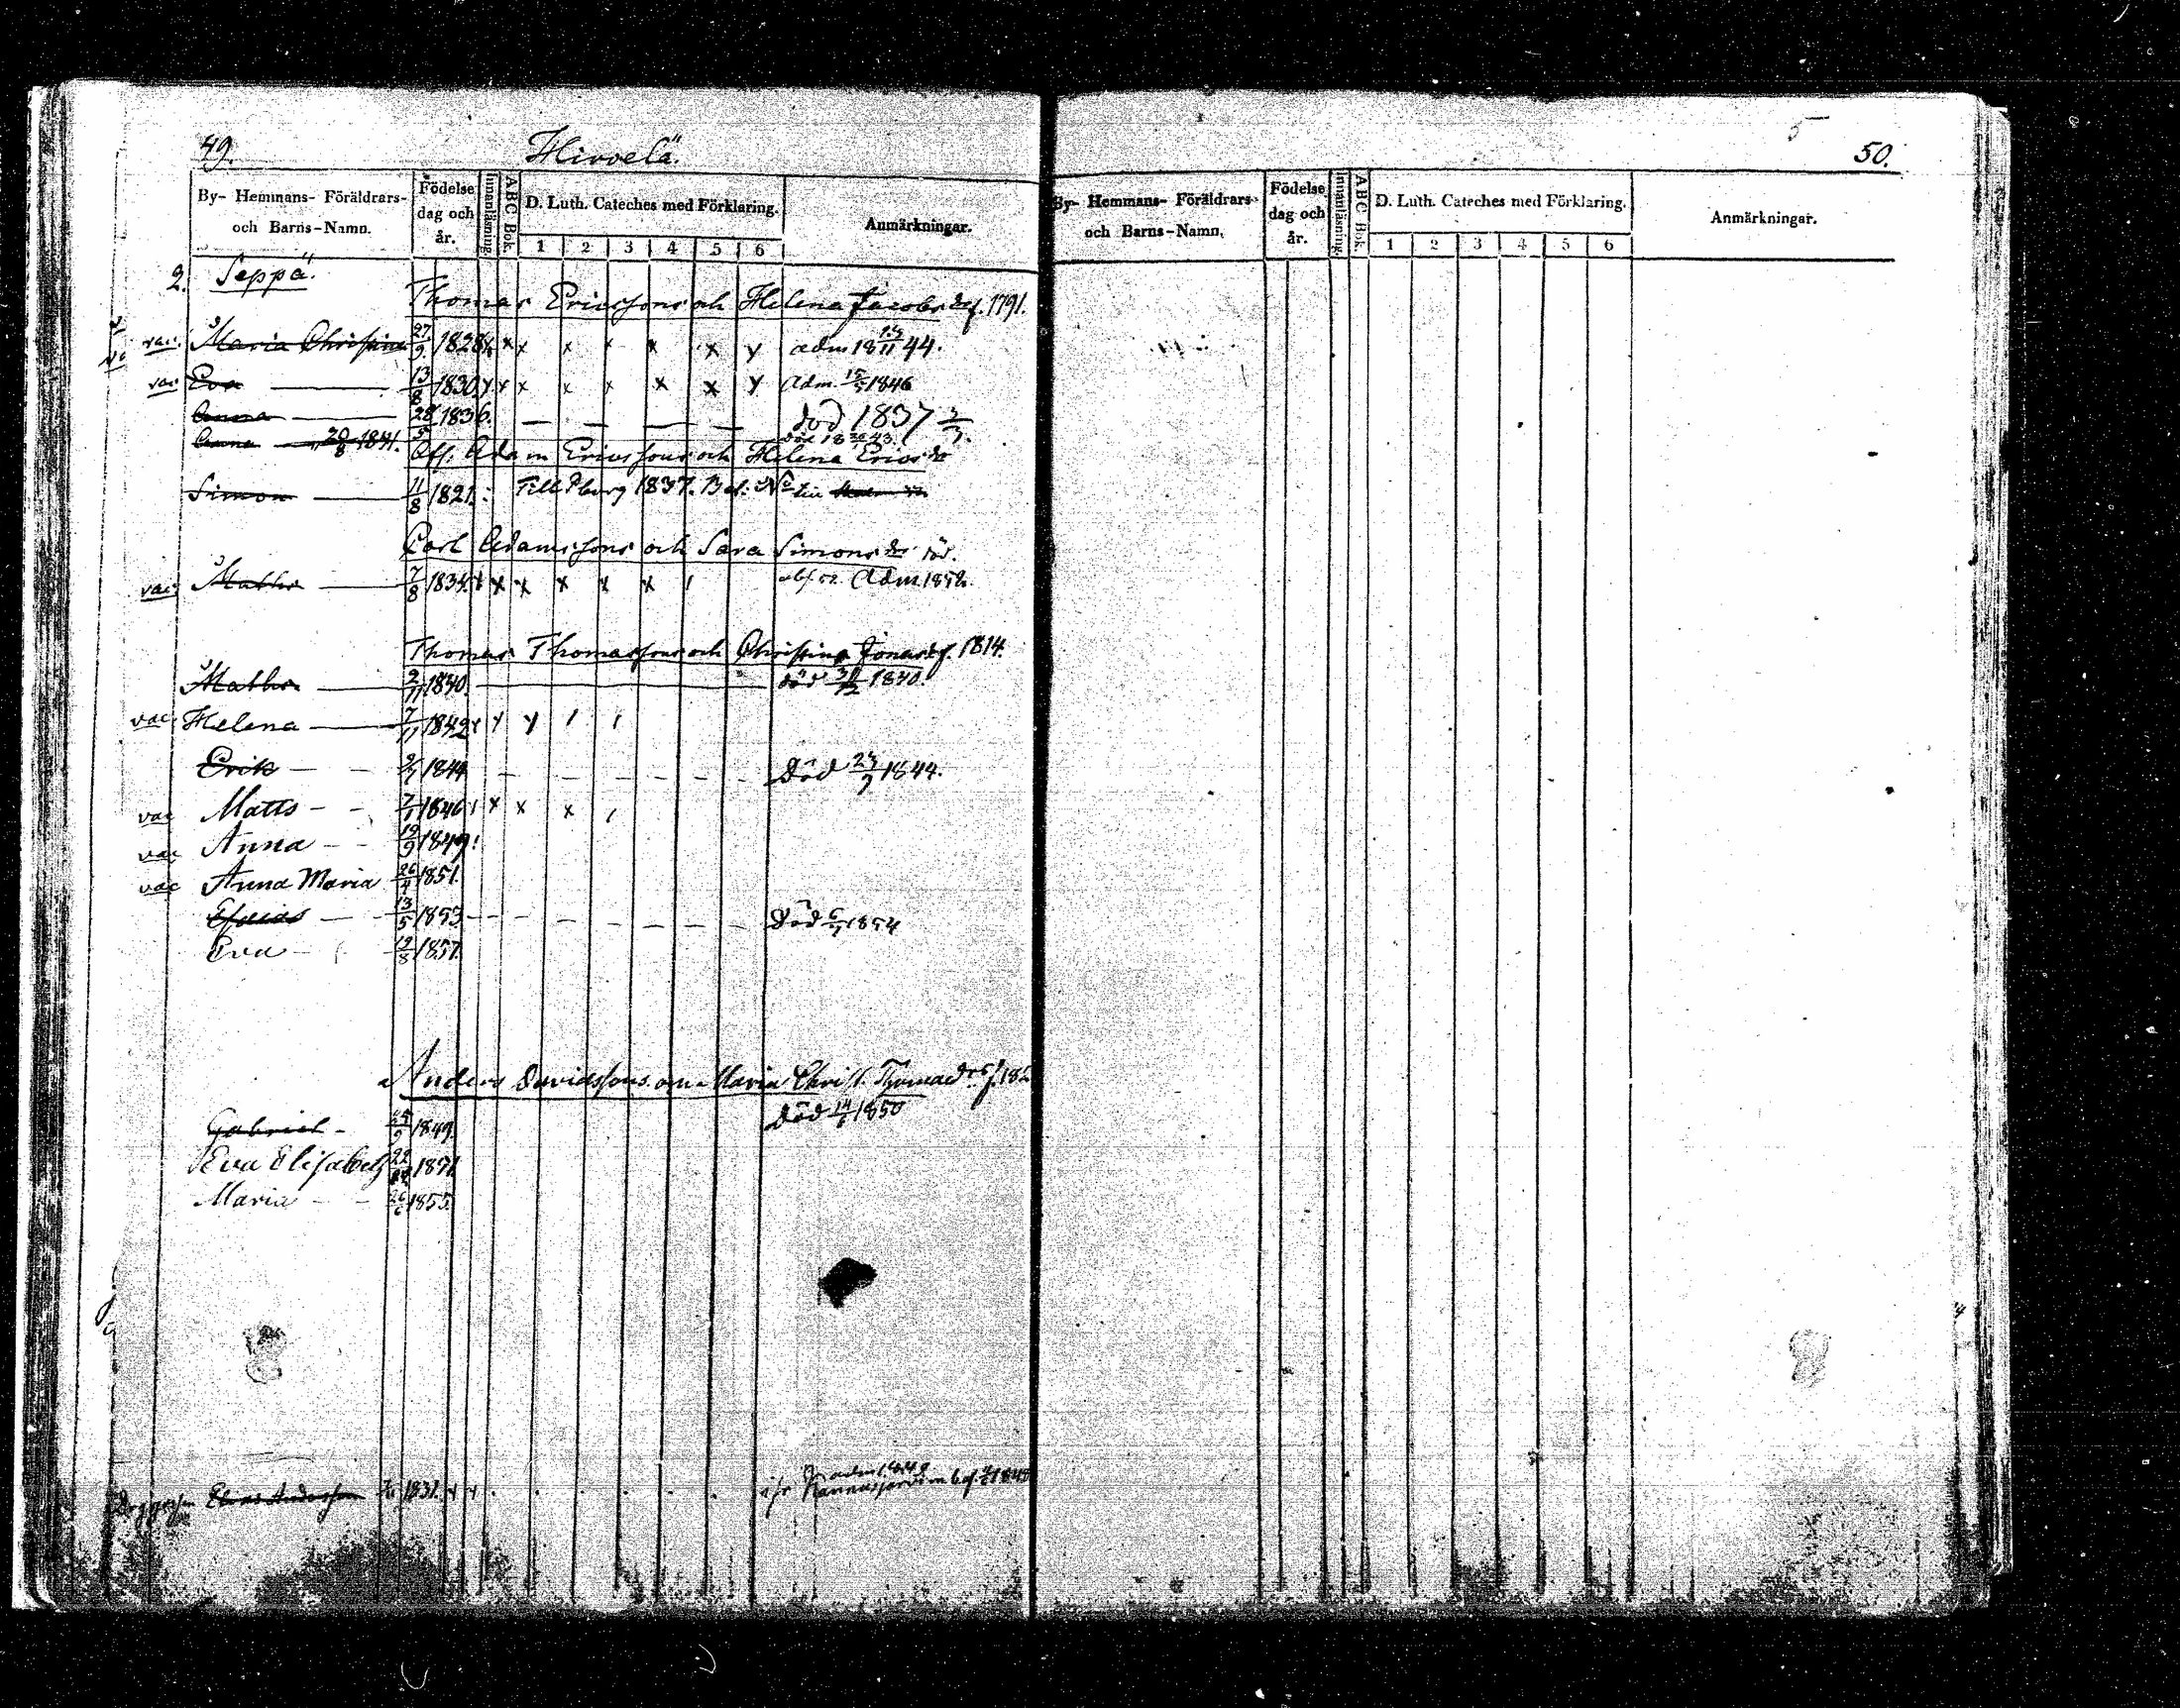 49.
Hirvelä.
By- Hemmans- Föräldrars- och Barns-Namn.
Födelse dag och år.
Innanläsning.
ABC Bok.
D. Luth. Cateches med Förklaring.
1 2 3 4 5 6
Anmärkningar.
2. Seppä.
Thomas Ericssons och Helena Jacobsdr f. 1791.
vac. Maria Christina 27/9 1828 x x x x x x x y adm 18 /11 44.
vac Eva 13/8 1830 y x x x x x x y Adm. 15/ 1846
Anna 28/5 1836. död 1837
Anna 20/8 1841. död 18 43.
Aff. Adam Ericssons och Helena Ericsdr
Simon 11/8 1821: Till Pborg 1837. Bet: No
Carl Adamssons och Sara Simonsdr
vac Matts 7/8 1834 x x x x x x Adm. 1852.
Thomas Thomassons och Christina Jonasdr f. 1814.
Matts 2/11 1840. död 1840.
vac. Helena 7/11 1842 y y y
Erik 1844 Död 1844.
vac Matts 1846 x x x
vac Anna 19/9 1849.
vac Anna Maria 26/4 1851.
Esaias 13/5 1853 Död 1854
Eva 19/8 1857.
Anders Davidssons o. Maria Christ. Thomaedr f. 182
Gabriel 1849. Död 14/6 1850
Eva Elisabeth 22/ 1851
Maria 26/6 1855.
Elias Andersson 1831. adm 1849
50.
By- Hemmans- Föräldrars- och Barns-Namn,
Födelse dag och år.
Innanläsning.
ABC Bok.
D. Luth. Cateches med Förklaring.
1 2 3 4 5 6
Anmärkningar.